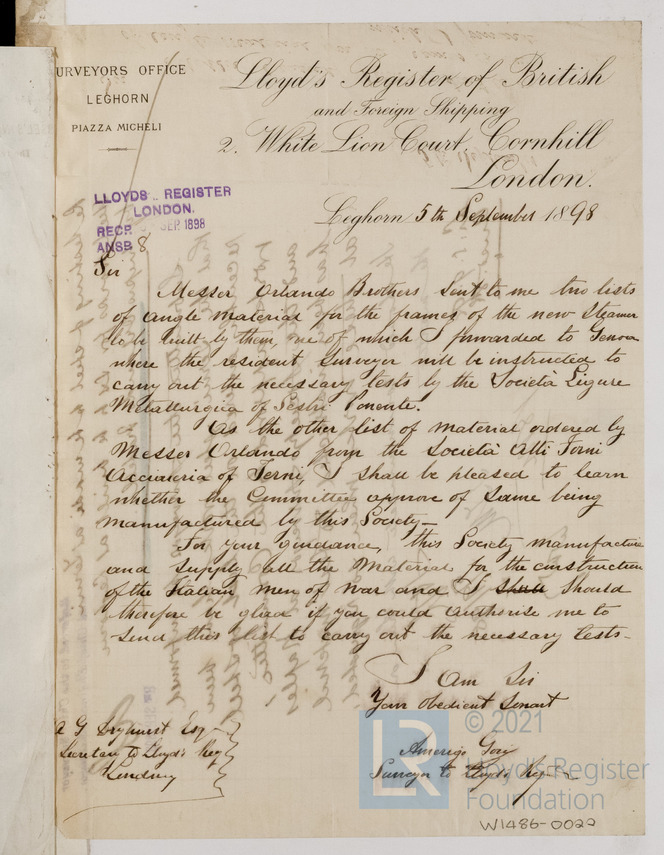 SURVEYORS OFFICE
LEGHORN
PIAZZA MICHELI
Lloyd's Register of British
and Foreign Shipping
2. White Lion Court, Cornhill
London.
LLOYDS REGISTER
LONDON.
RECD SEP. 1898
ANSD 8
Leghorn 5th September 1898
Sir
Messer Orlando Brothers sent to me two lists
of angle material for the frames of the new Steamer
to be built by them, one of which I forwarded to Genoa
where the resident Surveyor will be instructed to
carry out the necessary tests by the Società Ligure
Metallurgica of Sestri Ponente.
As the other list of material ordered by
Messer Orlando from the Società Alti Forni
Acciaieria of Terni, I shall be pleased to learn
whether the Committee approve of same being
manufactured by this Society_
For your guidance, this Society manufacture
and supply all the Material for the construction
of the Italian men of war and I shall should
therefore be glad if you could authorise me to
send this list to carry out the necessary tests_
I am Sir
Your obedient Servant
A G Dryhurst Esq
Secretary to Lloyd's Reg
London
Amerigo
Surveyor to Lloyds Register
© 2021
Lloyd's Register
Foundation
LR
W1486-0022